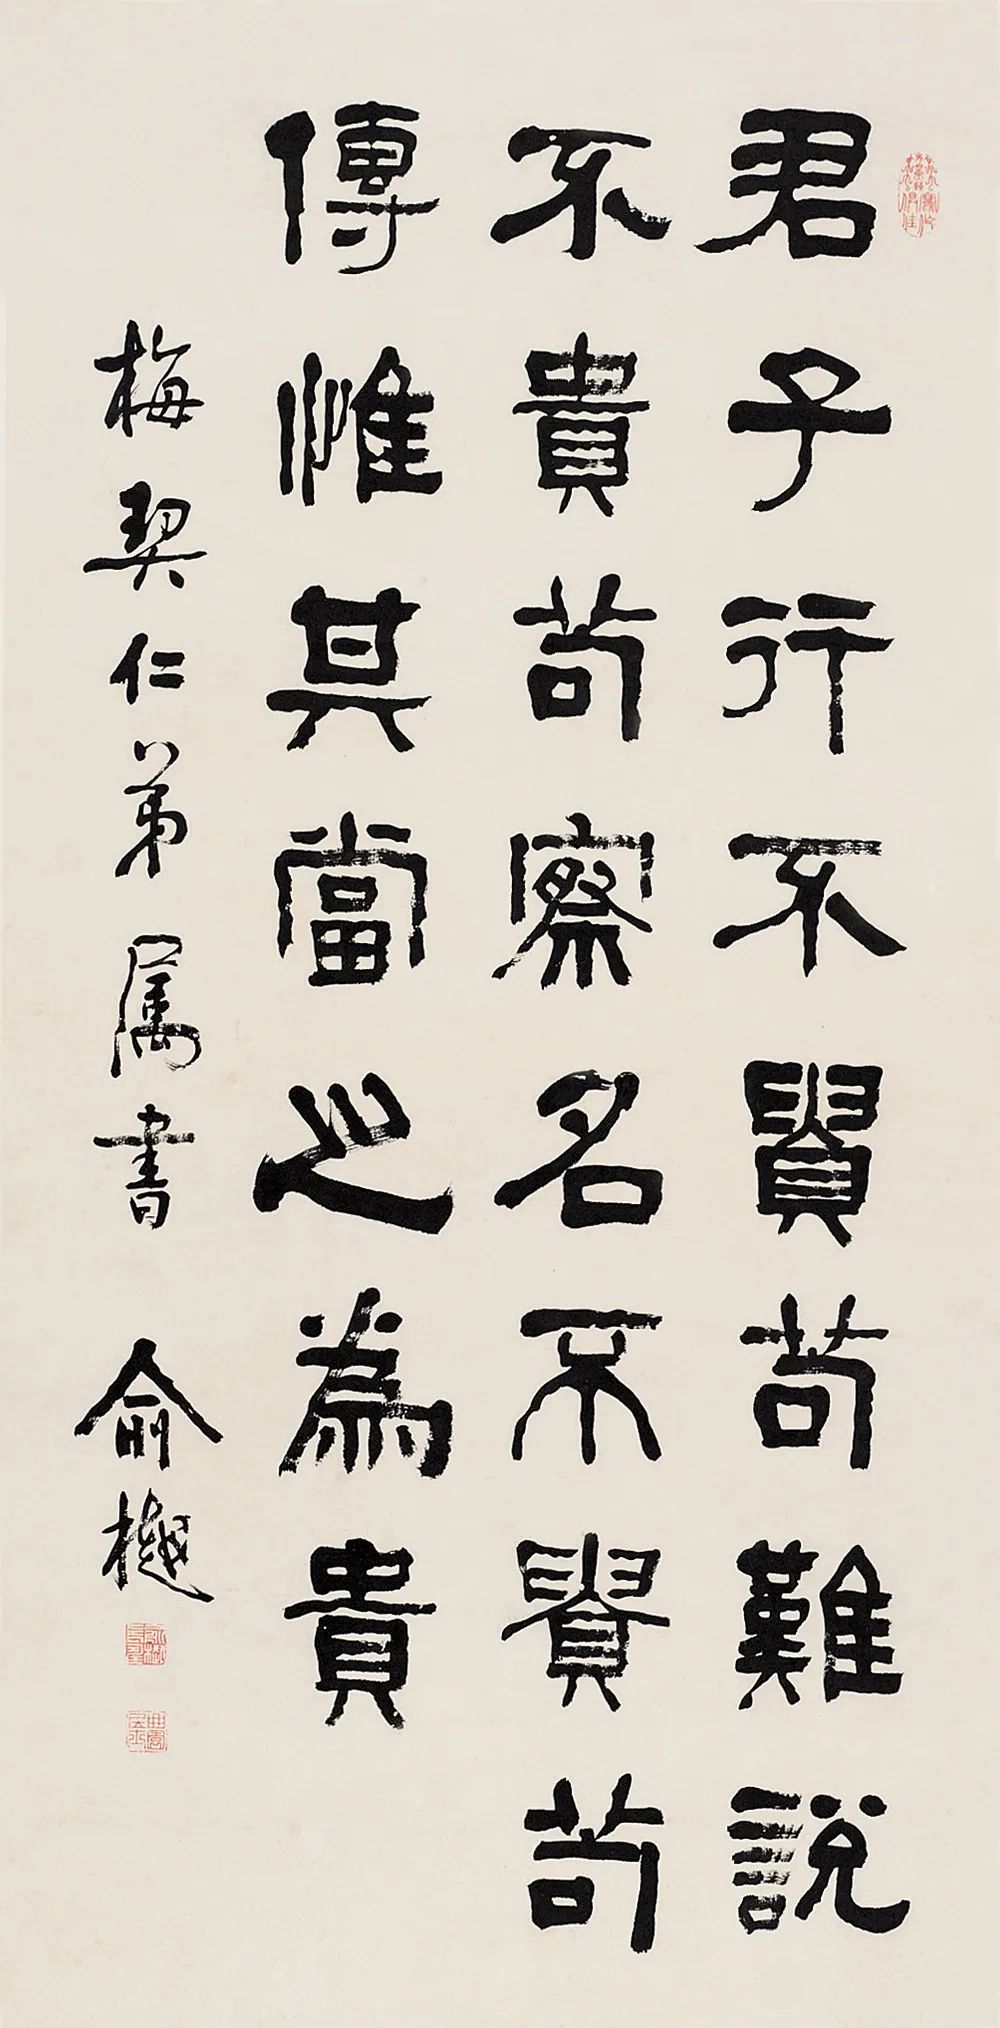 君子行不貴苟難說
不貴苟察名不貴苟
傳惟其當之為貴
梅契仁弟屬書 俞樾
曲園居士